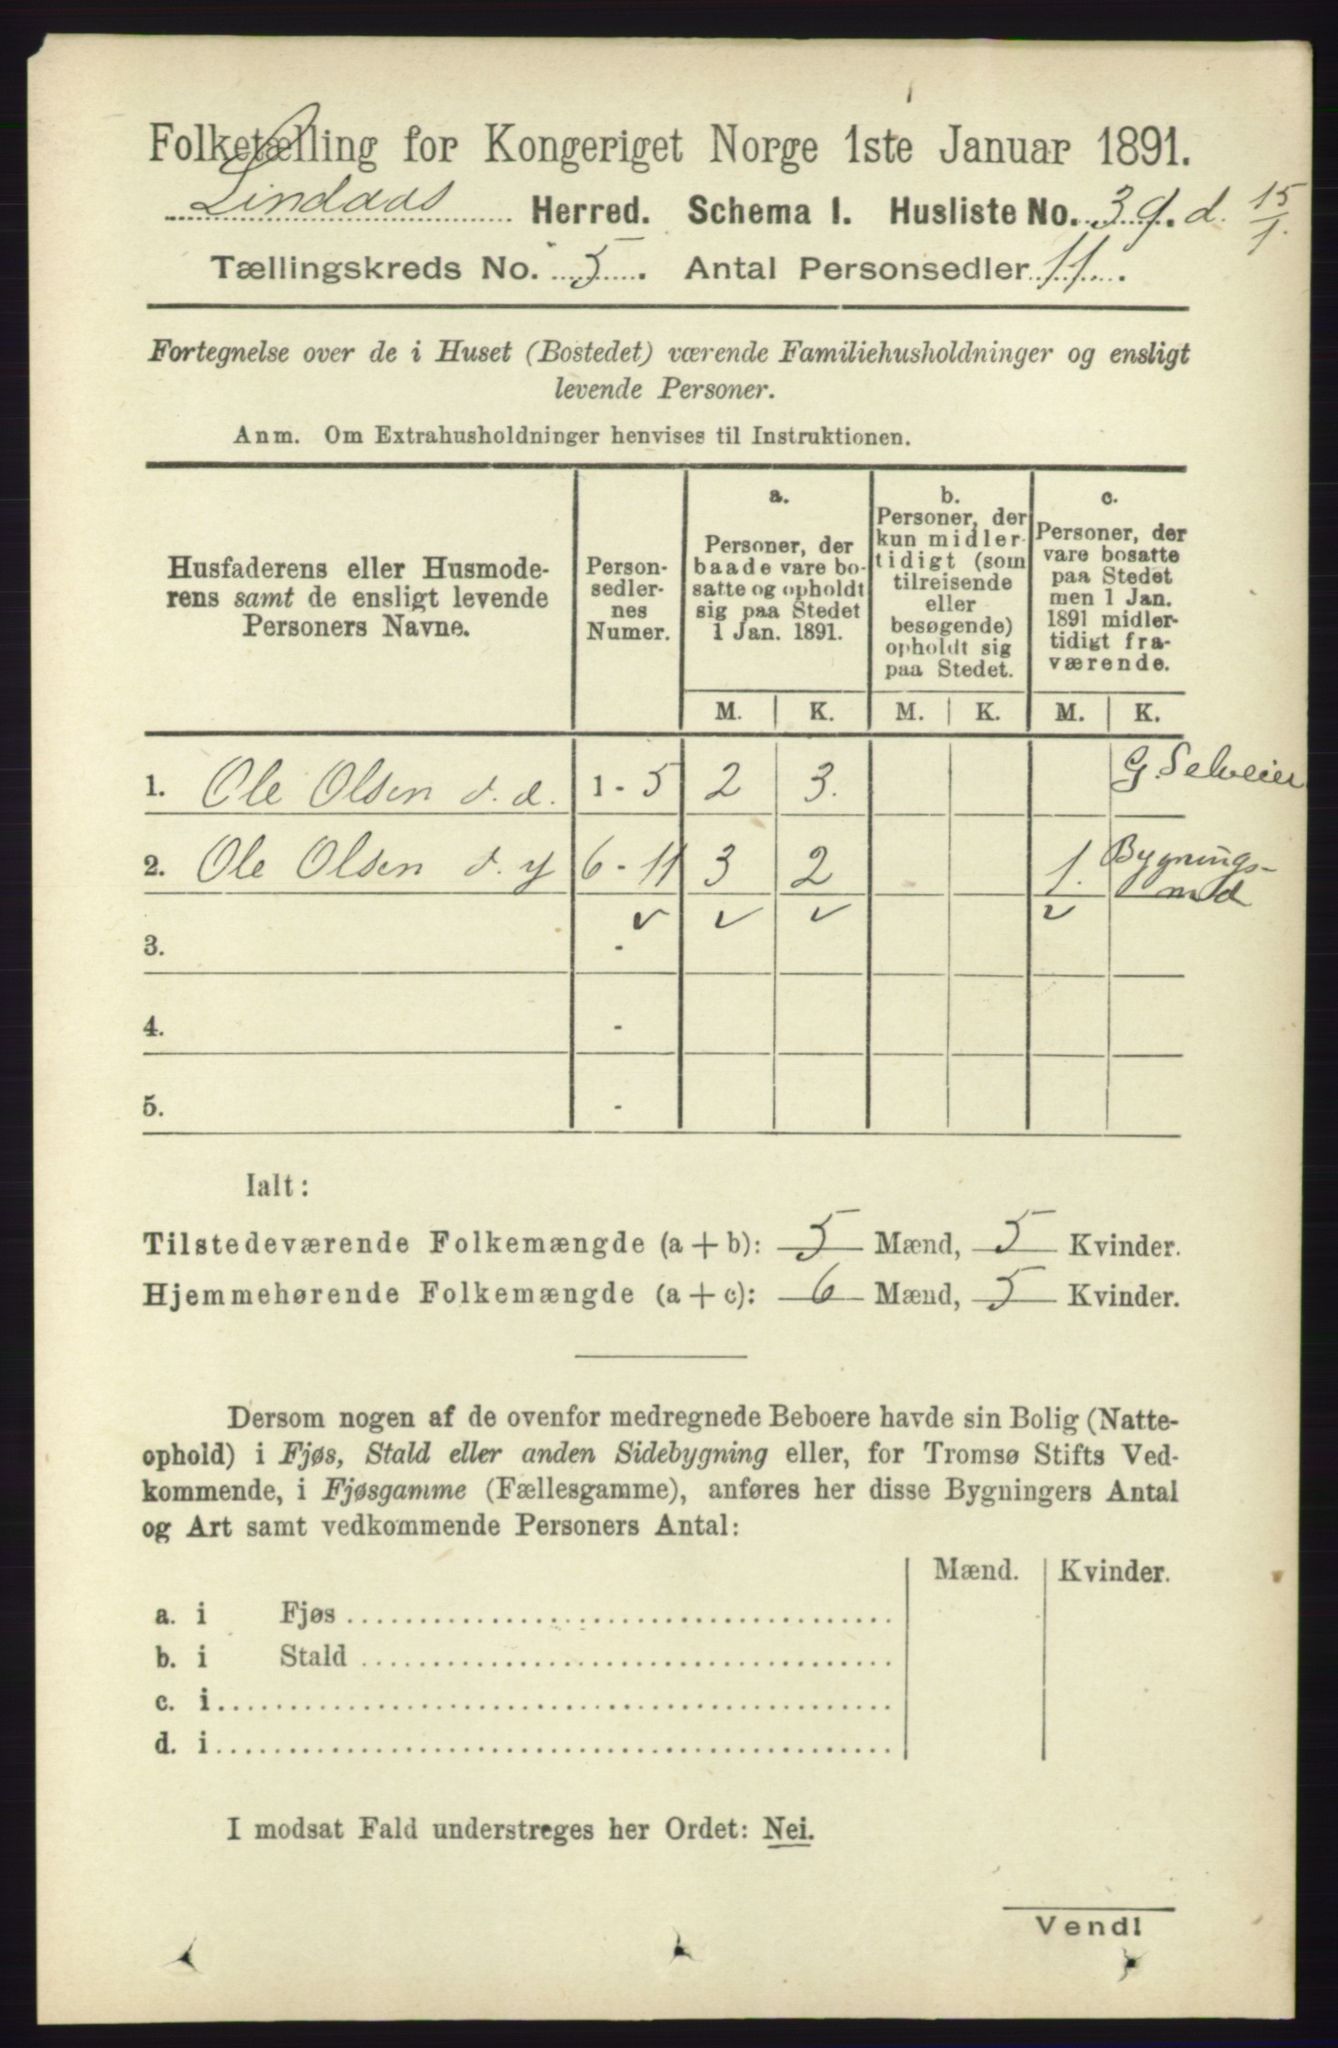 Folketælling for Kongeriget Norge 1ste Januar 1891.
Lindaas Herred. Schema I. Husliste No. 39. d. 15/1.
Tællingskreds No. 5. Antal Personsedler 11.
Fortegnelse over de i Huset (Bostedet) værende Familiehusholdninger og ensligt
levende Personer.
Anm. Om Extrahusholdninger henvises til Instruktionen.
Husfaderens eller Husmode-
rens samt de ensligt levende
Personers Navne.
Person-
sedler-
nes
Numer.
a.
Personer, der
baade vare bo-
satte og opholdt
sig paa Stedet
1 Jan. 1891.
b.
Personer, der
kun midler-
tidigt (som
tilreisende
eller
besøgende)
opholdt sig
paa Stedet.
c.
Personer, der
vare bosatte
paa Stedet
men 1 Jan.
1891 midler-
tidigt fra-
værende.
M. K. M. K. M. K.
1. Ole Olsen d. æ. 1 - 5 2 3. G. Selveier
2. Ole Olsen d. y 6 - 11 3 2 1. Bygnings-
md
✓ ✓ ✓ ✓
3. -
4. -
5. -
Ialt:
Tilstedeværende Folkemængde (a + b): 5 Mænd, 5 Kvinder.
Hjemmehørende Folkemængde (a + c): 6 Mænd, 5 Kvinder.
Dersom nogen af de ovenfor medregnede Beboere havde sin Bolig (Natte-
ophold) i Fjøs, Stald eller anden Sidebygning eller, for Tromsø Stifts Ved-
kommende, i Fjøsgamme (Fællesgamme), anføres her disse Bygningers Antal
og Art samt vedkommende Personers Antal:
Mænd. Kvinder.
a. i Fjøs
b. i Stald
c. i
d. i
I modsat Fald understreges her Ordet: Nei.
Vend!